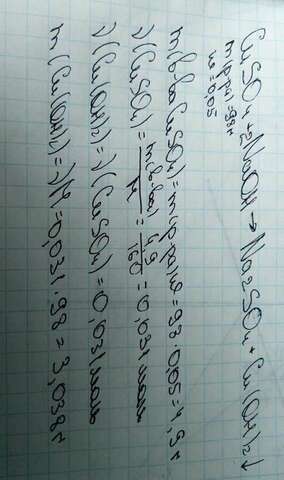 CuSO₄ + 2NaOH → Na₂SO₄ + Cu(OH)₂↓
m(р-ра) = 98г
w = 0,05
m(в-ва CuSO₄) = m(р-ра)·w = 98 · 0,05 = 4,9 г
ν(CuSO₄) = m(в-ва)/M = 4,9/160 = 0,031 моль
ν(Cu(OH)₂) = ν(CuSO₄) = 0,031 моль
m(Cu(OH)₂) = ν·M = 0,031 · 98 = 3,038 г